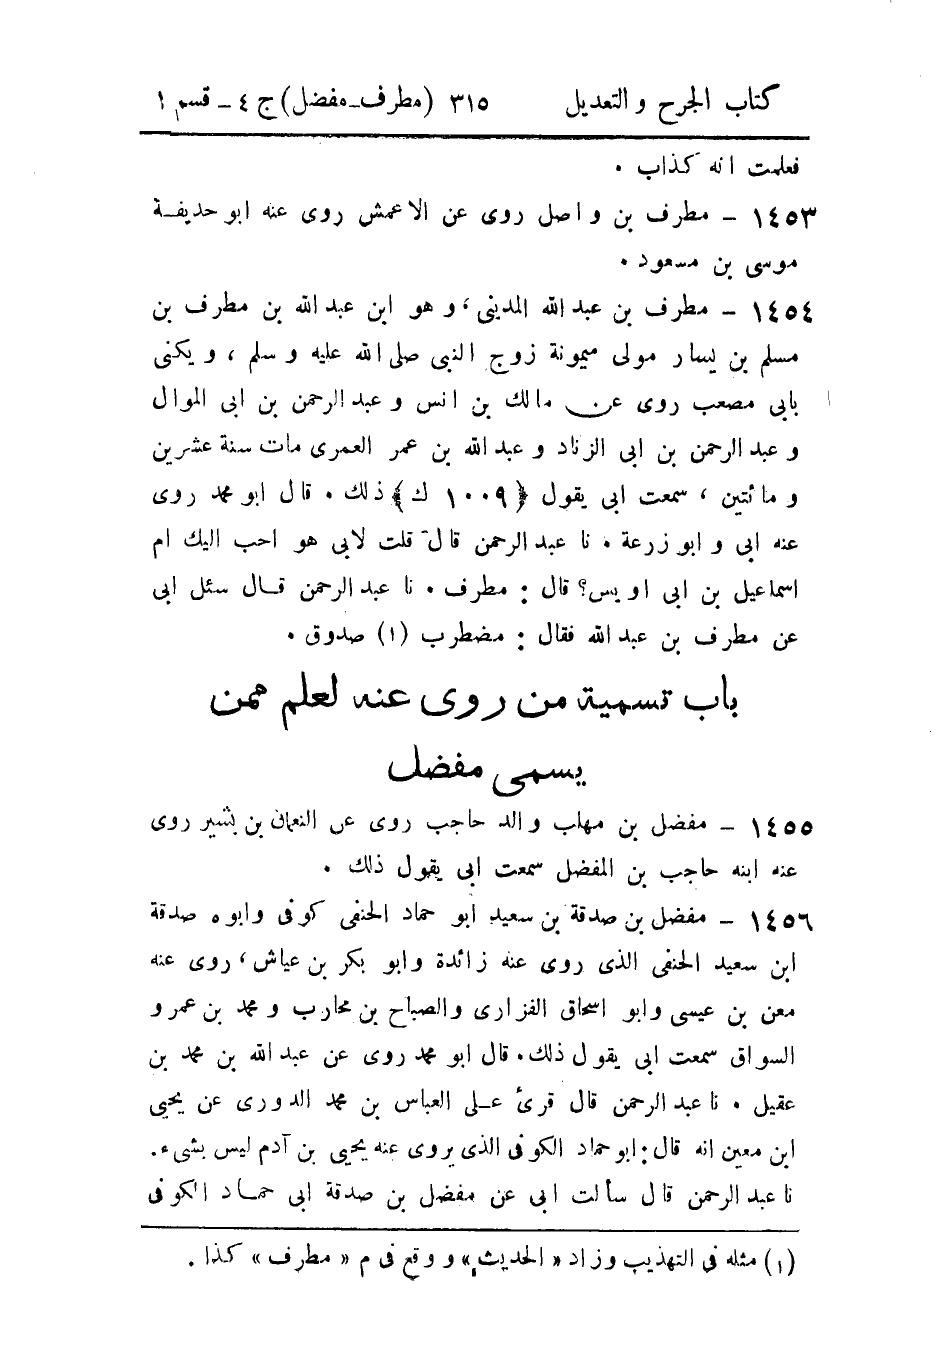 كتاب الجرح والتعديل ٣١٥ (مطرف - مفضل) ج ٤ - قسم ١
فعلمت انه كذاب .
١٤٥٣ - مطرف بن واصل روى عن الاعمش روى عنه ابو حذيفة
موسى بن مسعود .
١٤٥٤ - مطرف بن عبد الله المديني ، وهو ابن عبد الله بن مطرف بن
مسلم بن يسار مولى ميمونة زوج النبى صلى الله عليه وسلم ، ويكنى
بابى مصعب روى عن مالك بن انس وعبد الرحمن بن ابى الموال
وعبد الرحمن بن ابى الزناد وعبد الله بن عمر العمرى مات سنة عشرين
ومائتين ، سمعت ابى يقول ﴿١٠٠٩ ك﴾ ذلك . قال ابو محمد روى
عنه ابى وابو زرعة . نا عبد الرحمن قال قلت لابى هو احب اليك ام
اسماعيل بن ابى اويس؟ قال : مطرف . نا عبد الرحمن قال سئل ابى
عن مطرف بن عبد الله فقال : مضطرب (١) صدوق .
باب تسمية من روى عنه لعلم ممن
يسمى مفضل
١٤٥٥ - مفضل بن مهلب والد حاجب روى عن النعمان بن بشير روى
عنه ابنه حاجب بن المفضل سمعت ابى يقول ذلك .
١٤٥٦ - مفضل بن صدقة بن سعيد ابو حماد الحنفى كوفى وابوه صدقة
ابن سعيد الحنفى الذى روى عنه زائدة وابو بكر بن عياش ، روى عنه
معن بن عيسى وابو اسحاق الفزارى والصباح بن محارب ومحمد بن عمرو
السواق سمعت ابى يقول ذلك . قال ابو محمد روى عن عبد الله بن محمد بن
عقيل . نا عبد الرحمن قال قرئ على العباس بن محمد الدورى عن يحيى
ابن معين انه قال : ابو حماد الكوفى الذى يروى عنه يحيى بن آدم ليس بشىء .
نا عبد الرحمن قال سألت ابى عن مفضل بن صدقة ابى حماد الكوفى
(١) مثله فى التهذيب وزاد « الحديث » ووقع فى م « مطرف » كذا .